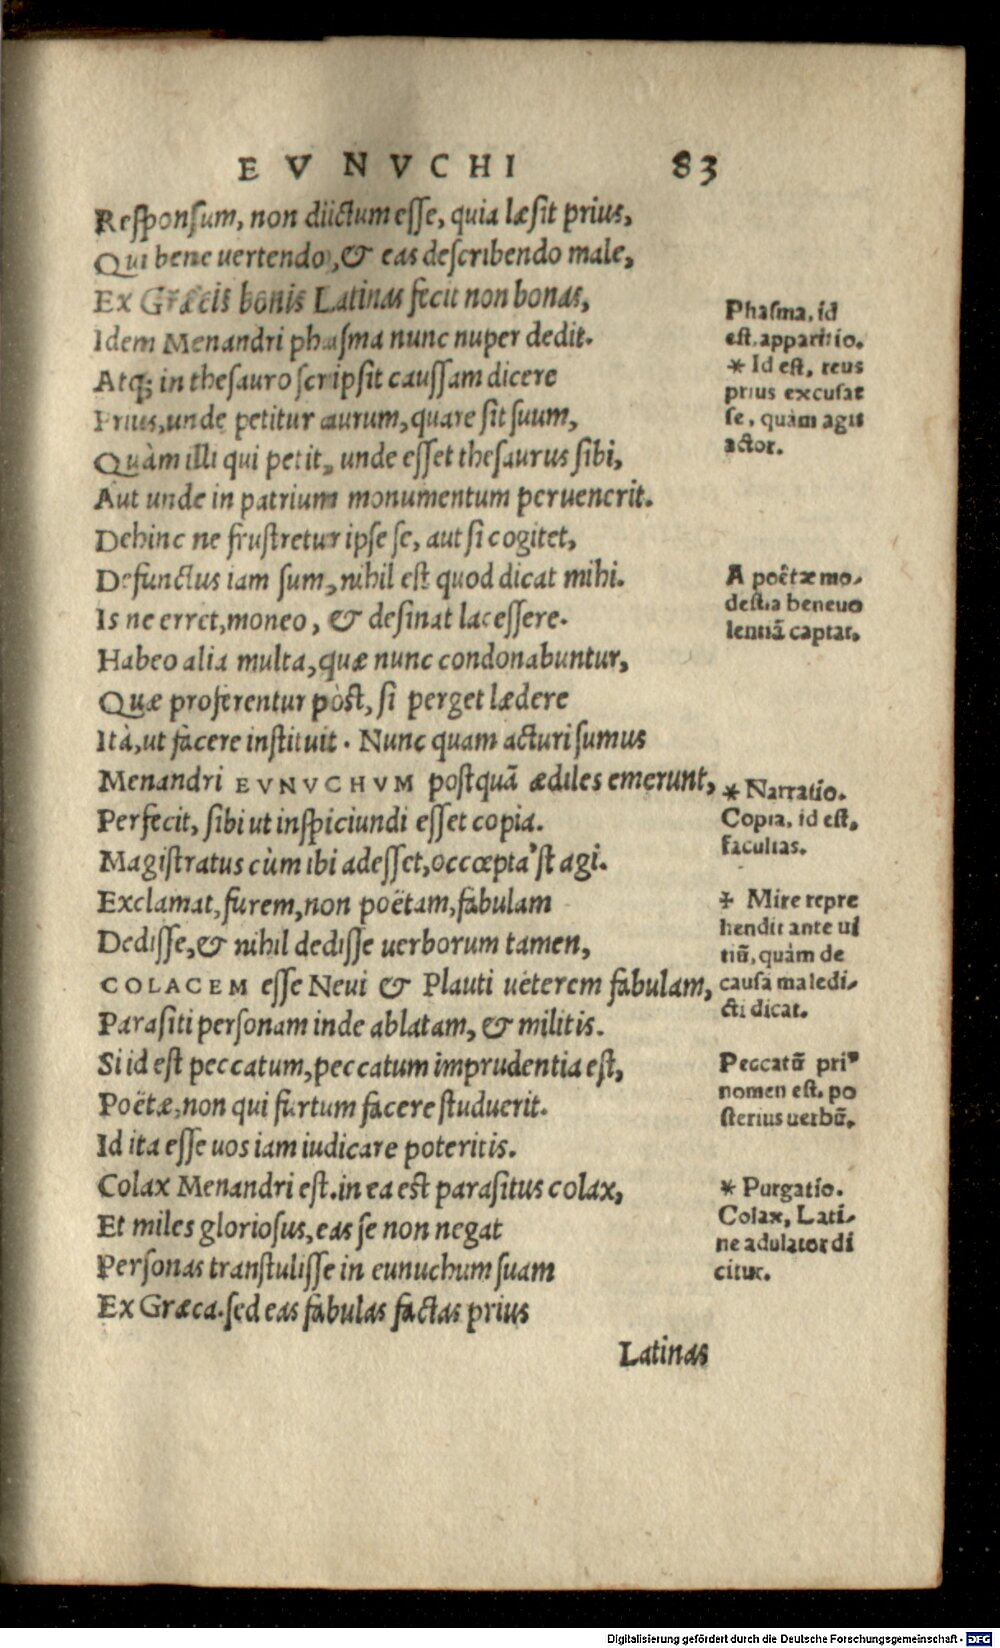 EVNVCHI 83
Responsum, non diictum esse, quia læsit prius,
Qui bene uertendo, & eas describendo male,
Ex Græcis bonis Latinas fecit non bonas,
Idem Menandri phasma nunc nuper dedit.
Atq; in thesauro scripsit caussam dicere
Prius, unde petitur aurum, quare sit suum,
Quàm illi qui petit, unde esset thesaurus sibi,
Aut unde in patrium monumentum peruenerit.
Dehinc ne frustretur ipse se, aut si cogitet,
Defunctus iam sum, nihil est quod dicat mihi.
Is ne erret, moneo, & desinat lacessere.
Habeo alia multa, quæ nunc condonabuntur,
Quæ proferentur pòst, si perget lædere
Ità, ut facere instituit. Nunc quam acturi sumus
Menandri EVNVCHVM postquã ædiles emerunt,
Perfecit, sibi ut inspiciundi esset copia.
Magistratus cùm ibi adesset, occœpta'st agi.
Exclamat, furem, non poëtam, fabulam
Dedisse, & nihil dedisse uerborum tamen,
COLACEM esse Neui & Plauti ueterem fabulam,
Parasiti personam inde ablatam, & militis.
Si id est peccatum, peccatum imprudentia est,
Poëtæ, non qui furtum facere studuerit.
Id ita esse uos iam iudicare poteritis.
Colax Menandri est. in ea est parasitus colax,
Et miles gloriosus, eas se non negat
Personas transtulisse in eunuchum suam
Ex Græca. sed eas fabulas factas prius
Latinas
Phasma, id
est, apparitio.
* Id est, reus
prius excusat
se, quàm agit
actor.
A poëtæ mo-
destia beneuo
lentiã captat.
* Narratio.
Copia, id est,
facultas.
✢ Mire repre
hendit ante ui
tiũ, quàm de
causa maledi-
cti dicat.
Peccatũ priꝰ
nomen est. po
sterius uerbũ.
* Purgatio.
Colax, Lati-
ne adulator di
citur.
Digitalisierung gefördert durch die Deutsche Forschungsgemeinschaft - DFG